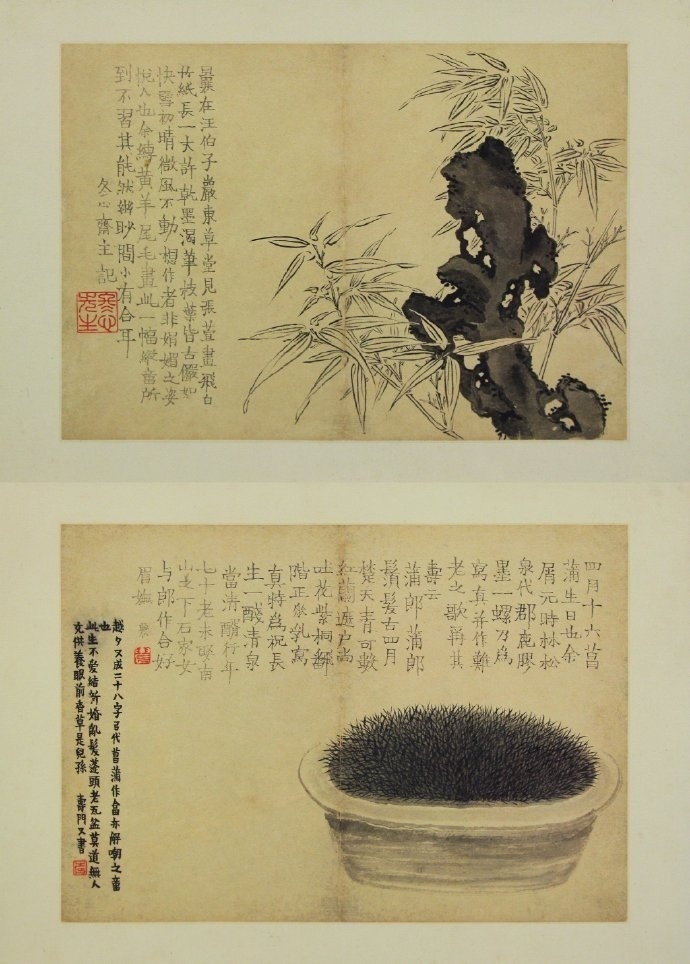 曩在汪伯子巖東草堂見張萱畫飛白
竹紙長一丈許乾墨渴筆枝葉皆古儼如
快雪初晴微風不動想作者非娟媚之姿
悅人也余縛黃羊尾毛畫此一幅縱意所
到不習其能狀幽眇間小有合耳
冬心齋主記
四月十六菖
蒲生日也余
屑元時林松
泉代郡鹿膠
墨一螺乃為
寫真并作難
老之歌稱其
壽云
蒲郎蒲郎
鬚髮古四月
楚天青可數
紅蘭遮戶尚
吐花紫桐翻
階正飲乳寫
真特為祝長
生一醆清泉
當清醑行年
七十老未娶南
山之下石家女
与郎作合好
眉嫵
越夕又成二十八字司代菖蒲作答亦解嘲之意
也
此生不爱結新婚亂髮蓬頭老瓦盆莫道無人
充供養眼前香草是兒孫 壽門又書